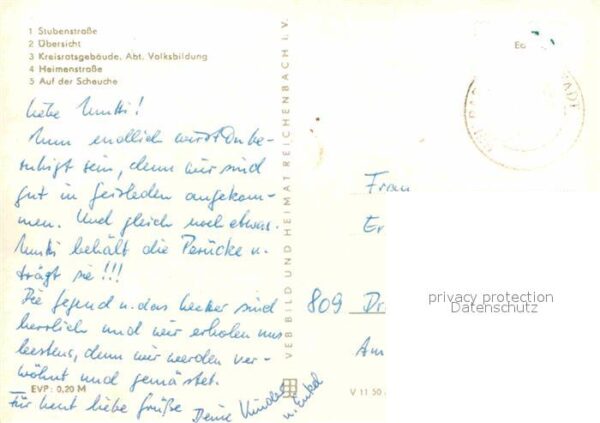 1 Stubenstraße
2 Übersicht
3 Kreisratsgebäude, Abt. Volksbildung
4 Heimenstraße
5 Auf der Scheuche
Liebe Mutti!
Nun endlich wirst Du be-
ruhigt sein, denn wir sind
gut in Geisleden angekom-
men. Und gleich noch etwas.
Mutti behält die Perücke u.
trägt sie!!!
Die Gegend u. das Wetter sind
herrlich und wir erholen uns
bestens, denn wir werden ver-
wöhnt und gemästet.
Für heut liebe Grüße
Deine Kinder
u. Enkel
EVP: 0,20 M
VEB BILD UND HEIMAT REICHENBACH I. V.
V 11 50
Frau
Er
809 Dr
Am
privacy protection
Datenschutz